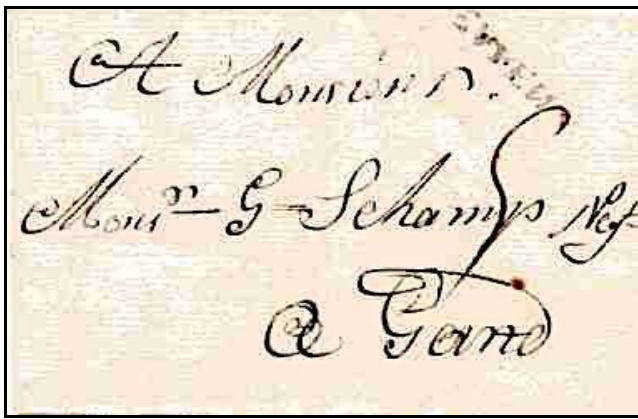 A Monsieur.
Monsr G Schamp Neg
a Gand